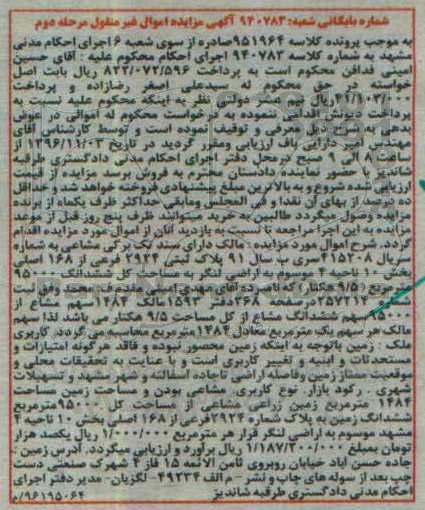 شماره بایگانی شعبه: ۹۴۰۷۸۳ آگهی مزایده اموال غیر منقول مرحله دوم
به موجب پرونده کلاسه ۹۵۱۹۶۴صادره از سوی شعبه ۶ اجرای احکام مدنی
مشهد به شماره کلاسه ۹۴۰۷۸۳ اجرای احکام محکوم علیه : آقای حسین
امینی فدافن محکوم است به پرداخت ۸۲۲/۰۷۲/۵۹۶ ریال بابت اصل
خواسته در حق محکوم له سیدعلی اصغر رضازاده و پرداخت
۴۱/۱۰۳/۰۰۰ریال نیم عشر دولتی نظر به اینکه محکوم علیه نسبت به
پرداخت دیونش اقدامی ننموده به درخواست محکوم له اموالی در عوض
بدهی به شرح ذیل معرفی و توقیف نموده است و توسط کارشناس آقای
مهندس امیر دارابی پاف ارزیابی ومقرر گردید در تاریخ ۱۳۹۶/۱۱/۰۳ از
ساعت ۸ الی ۹ صبح درمحل دفتر اجرای احکام مدنی دادگستری طرقبه
شاندیز با حضور نماینده دادستان محترم به فروش برسد مزایده از قیمت
ارزیابی شده شروع و به بالاترین مبلغ پیشنهادی فروخته خواهد شد و حداقل
ده درصد از بهای آن نقدا و فی المجلس ومابقی حداکثر ظرف یکماه از برنده
مزایده وصول میگردد طالبین به خرید میتوانند ظرف پنج روز قبل از موعد
مزایده به این اجرا مراجعه تا نسبت به بازدید آنان از اموال مورد مزایده اقدام
گردد. شرح اموال مورد مزایده : مالک دارای سند تک برگی مشاعی به شماره
سریال ۴۱۵۲۰۸سری ب سال ۹۱ پلاک ثبتی ۲۹۲۴ فرعی از ۱۶۸ اصلی
بخش ۱۰ ناحیه ۴ موسوم به اراضی لنگر به مساحت کل ششدانگ ۹۵۰۰۰
مترمربع (۹/۵ هکتار) که نامبرده آقای مهدی امینی مقدم ف: محمد وفق ثبت
شماره ۲۵۷۲۱۲ درصفحه ۲۶۸دفتر ۱۵۹۳مالک ۱۴۸۴ سهم مشاع از
۹۵۰۰۰سهم ششدانگ مشاع از کل مساحت ۹/۵ هکتار می باشد لذا سهم
مالک هر سهم یک مترمربع معادل ۱۴۸۴ مترمربع محاسبه می گردد. کاربری
ملک : زمین باتوجه به اینکه زمین محصور نبوده و فاقد هرگونه امتیازات و
مستحدثات و ابنیه و تغییر کاربری است و با عنایت به تحقیقات محلی و
موقعیت ممتاز زمین وفاصله اراضی تاجاده آسفالته و شهر مشهد و تسهیلات
شهری . رکود بازار. نوع کاربری. مشاعی بودن و مساحت زمین مساحت
۱۴۸۴ مترمربع زمین زراعی مشاعی از مساحت کل ۹۵۰۰۰مترمربع
ششدانگ زمین به پلاک شماره ۲۹۲۴فرعی از ۱۶۸ اصلی بخش ۱۰ ناحیه ۴
مشهد موسوم به اراضی لنگر قرار هر مترمربع ۱/۰۰۰/۰۰۰ ریال یکصد هزار
تومان بمبلغ ۱/۱۸۷/۲۰۰/۰۰۰ ریال برآورد و ارزیابی میگردد. آدرس زمین :
جاده حسن آباد خیابان روبروی ثامن الائمه ۱۵ فاز ۴ شهرک صنعتی دست
چپ بعد از سوله های چاپ و نشر – م الف ۴۹۲۳۴ – لگزیان- مدیر دفتر اجرای
احکام مدنی دادگستری طرقبه شاندیز
۹۶۱۹۵۰۶۴/م